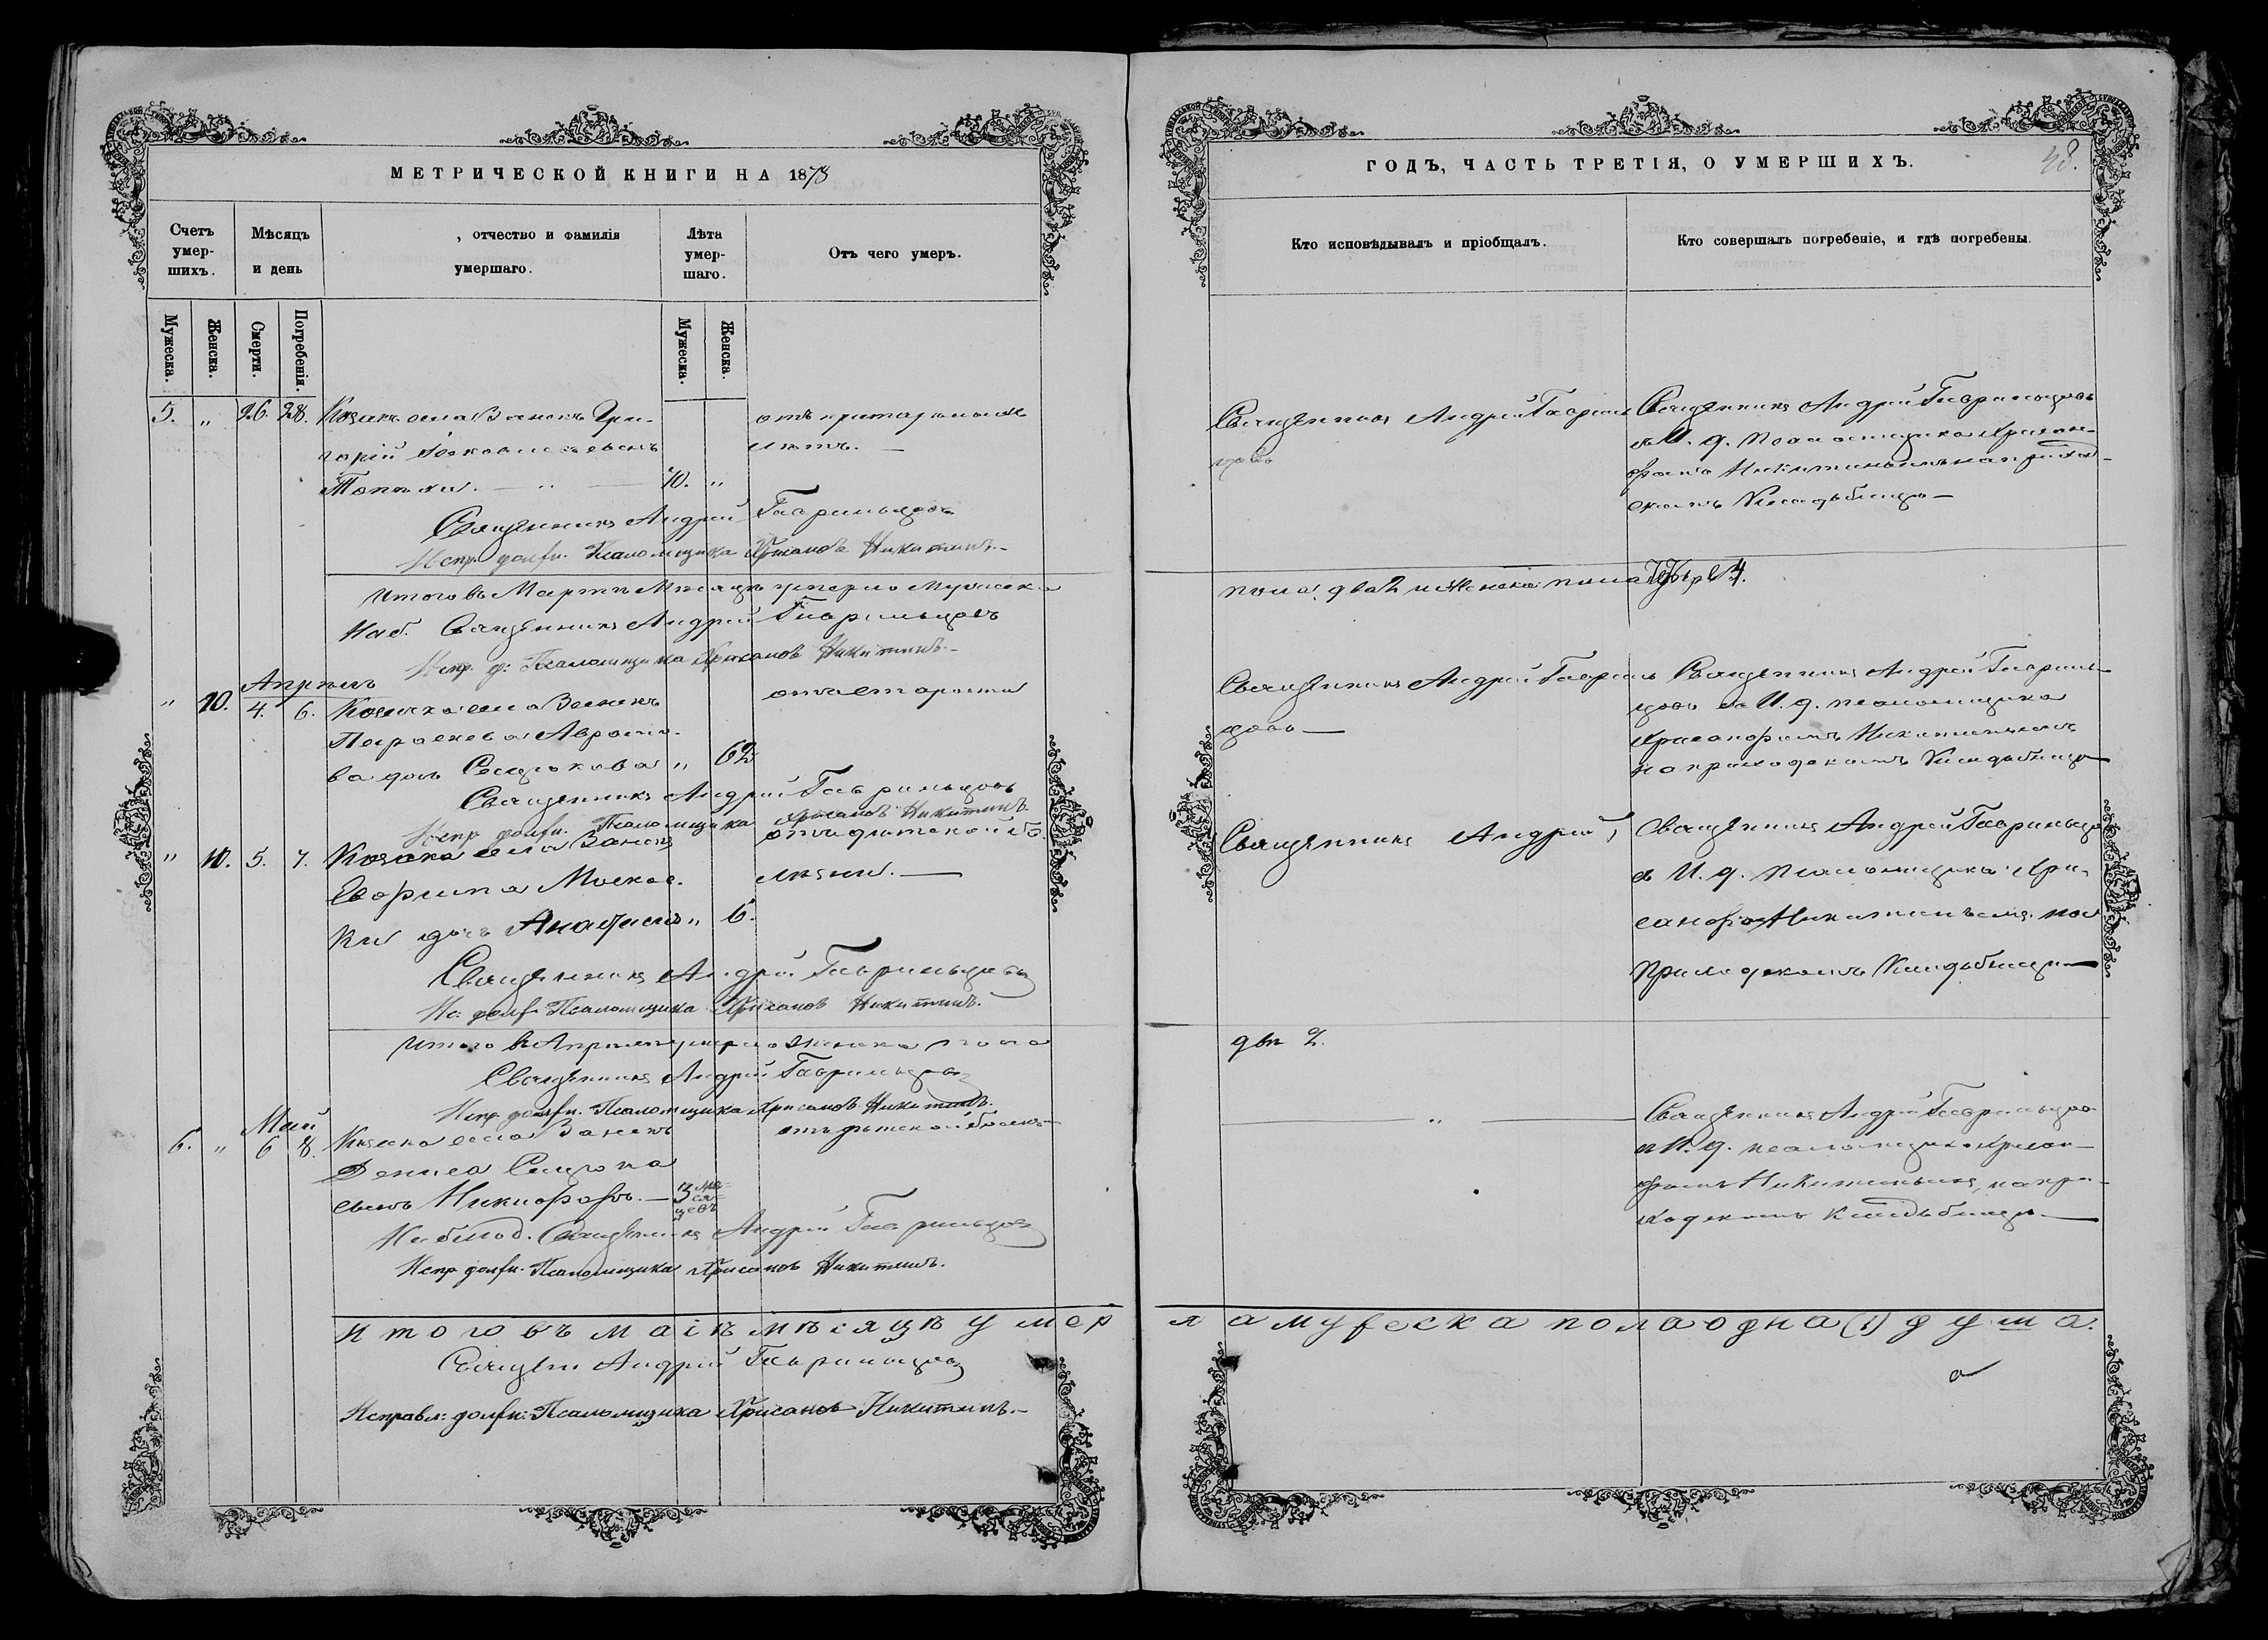 МЕТРИЧЕСКОЙ КНИГИ НА 1878
Счетъ умер-шихъ.
Мѣсяцъ и день
, отчество и фамилія умершаго.
Лѣта умер-шаго.
Отъ чего умеръ.
Мужеска.
Женска.
Смерти.
Погребенія.
Мужеска.
Женска.
5. " 26. 28. Козакъ села Ванекъ Гри-
горій
70. "
Священникъ Андрей Гаврильцовъ
Испр. должн. Псаломщика Хрисанѳъ Никитинъ.
Итого въ Мартѣ Мѣсяцѣ умерло Мужеска
Наб. Священникъ Андрей Гаврильцовъ
Испр. д: Псаломщика Хрисанѳъ Никитинъ.
Апрѣль
" 10. 4. 6. Козачка села Ванекъ
отъ старости
Параскева
62
Священникъ Андрей Гаврильцовъ
Испр. должн. Псаломщика Хрисанѳъ Никитинъ
" 11. 5. 7. Козака села Ванекъ
отъ дѣтской бо
лѣзни.
дочь " 6.
Священникъ Андрей Гаврильцовъ
Ис: должн Псаломщика Хрисанѳъ Никитинъ.
Итого въ Апрѣлѣ умерло женска пола
Священникъ Андрей Гаврильцовъ
Испр. должн. Псаломщика Хрисанѳъ Никитинъ.
Май
6. " 6 8. Козака села Ванекъ
отъ дѣтской
Дениса
сынъ Никифоръ. — 3 мѣ-
ся-
цевъ
Наблюд. Священникъ Андрей Гаврильцовъ
Испр. должн. Псаломщика Хрисанѳъ Никитинъ.
Итого въ маіѣ мѣсяцѣ умер
Священ Андрей Гаврильцовъ
Исправл: должн: Псаломщика Хрисанѳъ Никитинъ.
ГОДЪ, ЧАСТЬ ТРЕТІЯ, О УМЕРШИХЪ.
Кто исповѣдывалъ и пріобщалъ.
Кто совершалъ погребеніе, и гдѣ погребены.
Священникъ Андрей Гавриль
цовъ
Священникъ Андрей Гаврильцовъ
съ И. д. псаломщика Хрисан-
фомъ Никитинымъ на приход-
скомъ кладбищѣ —
пола: два 2 и Женска пола 4.
Священникъ Андрей Гавриль
цовъ —
Священникъ Андрей Гавриль-
цовъ съ И. д. псаломщика
Хрисанфомъ Никитинымъ
на приходскомъ кладбищѣ
Священникъ Андрей
Священникъ Андрей Гаврильцов
съ И. д. псаломщика Хри-
санфомъ Никитинымъ на
приходскомъ кладбищѣ —
двѣ 2.
"
Священникъ Андрей Гаврильцов
съ И. д. псаломщика Хрисан-
фомъ Никитинымъ, на при-
ходскомъ кладбищѣ —
ла мужеска пола одна (1) душа.